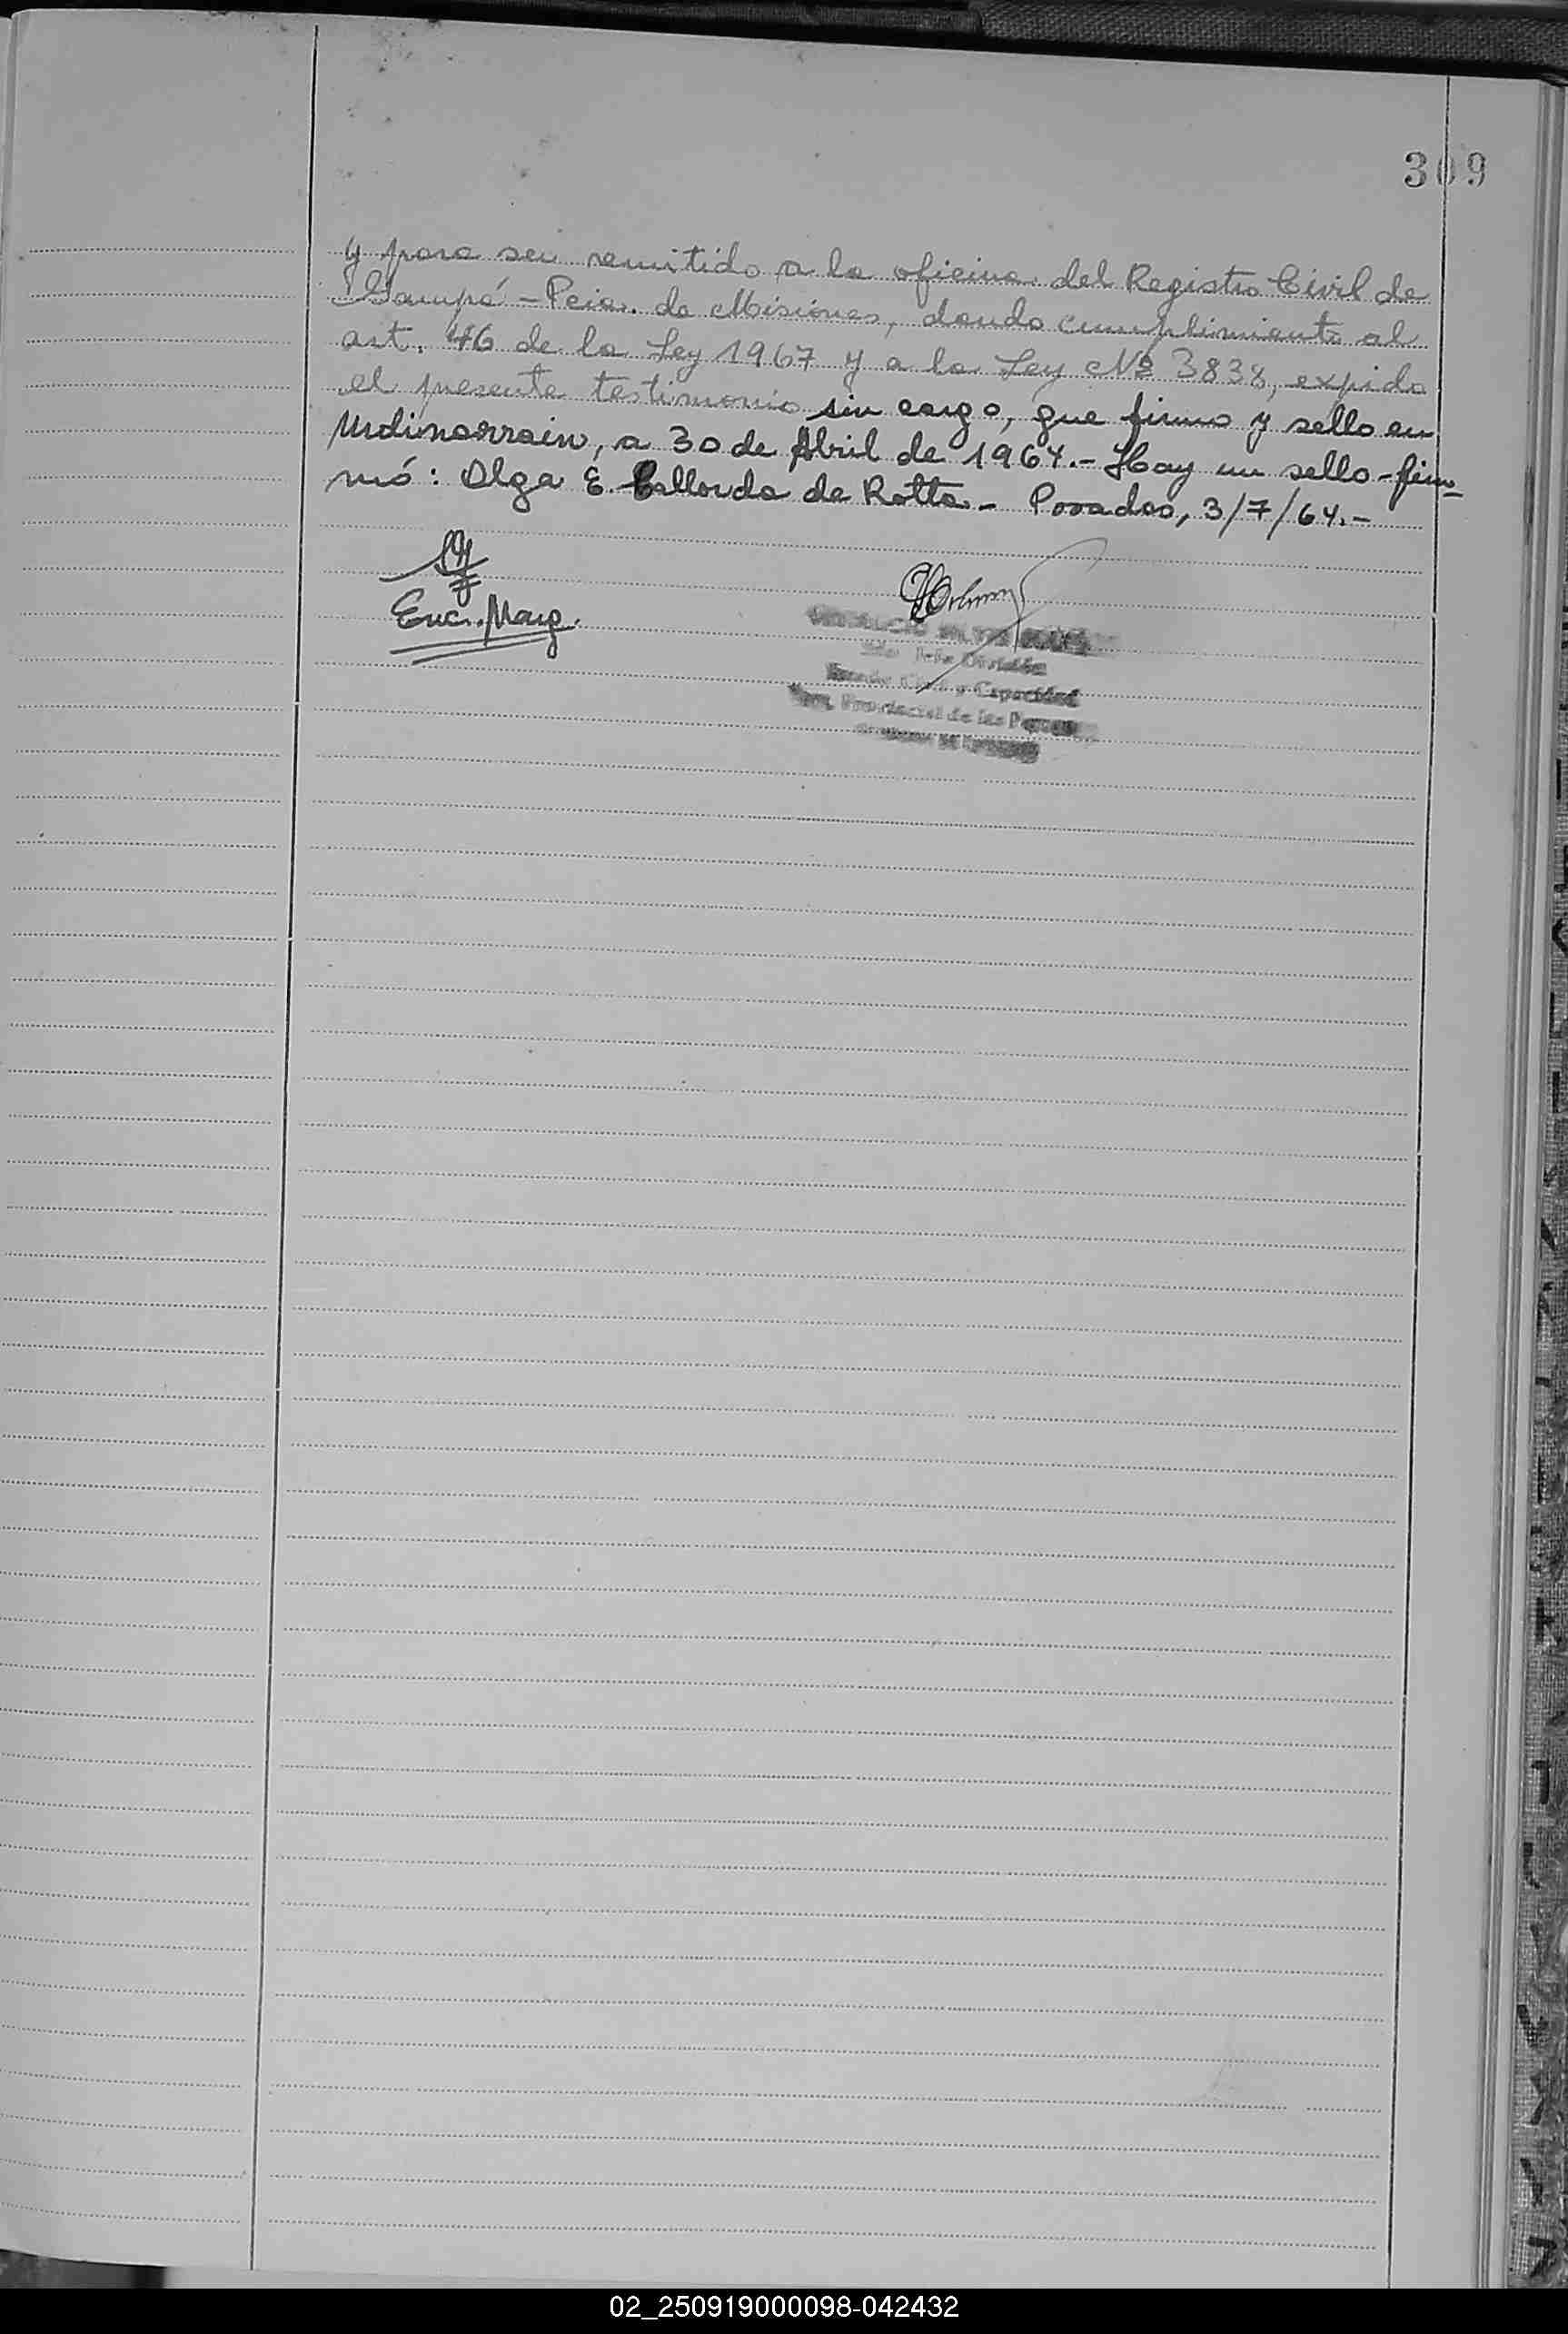 309
y para ser remitido a la oficina del Registro Civil de
Garupá - Pcia. de Misiones, dando cumplimiento al
art. 46 de la Ley 1967 y a la Ley Nº 3838, expido
el presente testimonio sin cargo, que firmo y sello en
Urdinarrain, a 30 de Abril de 1964.- Hay un sello - fir-
mó: Olga E. de Rotta - Posadas, 3/7/64.-
Enc. Marg.
Jefe División
Civil y Capacidad
Provincial de las
02_250919000098-042432